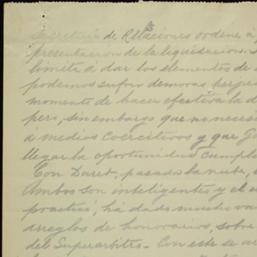 Secretaría de Relaciones ordene a
presentacion de la liquidacion. S
limita á dar los elementos de
podemos sufrir demoras perju
momento de hacer efectiva la d
pero, sin embargo que no neces
á medios coercitivos y que
llegar la oportunidad cumpl
Con Daret, pasada la nube,
Ambos son inteligentes y el
practico, há dado muchas va
arreglos de honorarios, sobre
del Superarbitro. Con este se ar